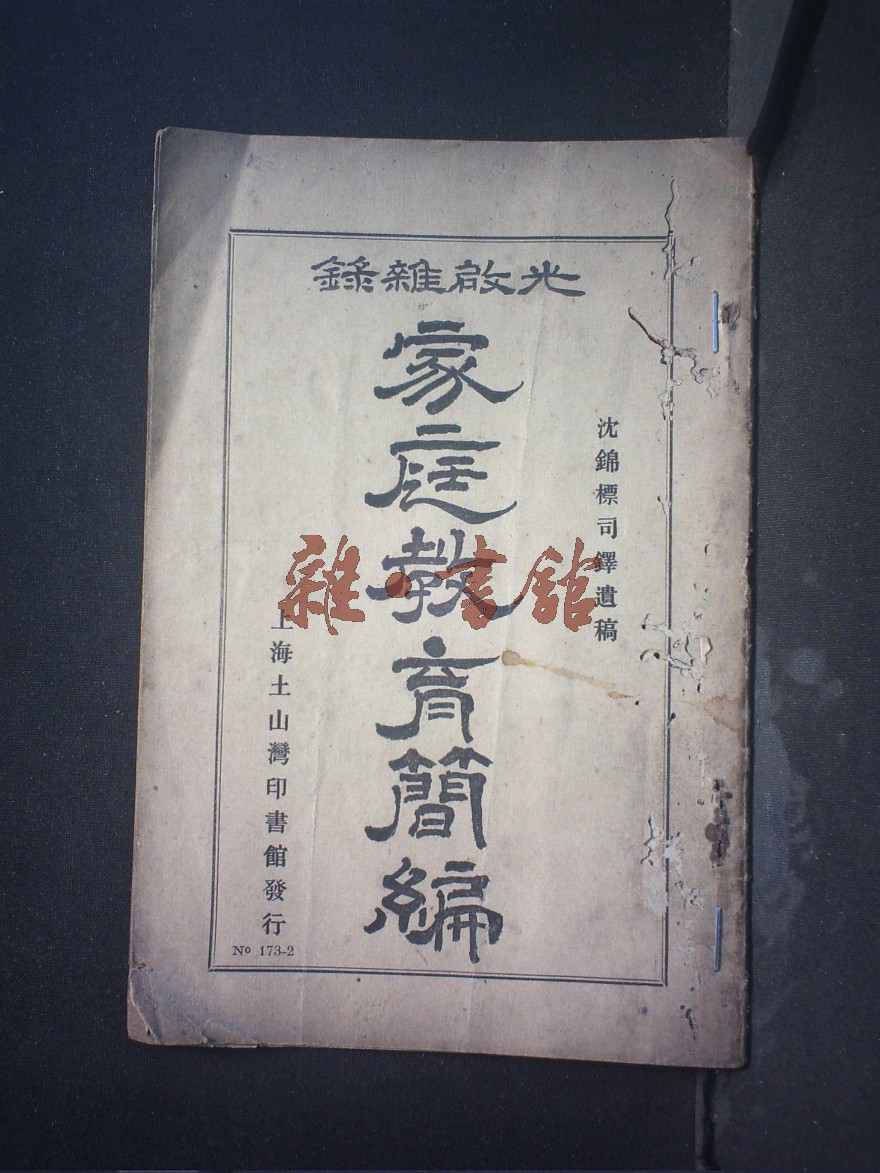 光啟雜錄
沈錦標司鐸遺稿
家庭教育簡編
上海土山灣印書館發行
Nº 173-2
雜·書館